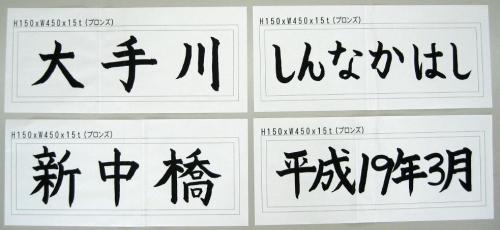 H150xW450x15t(ブロンズ)
大手川
H150xW450x15t(ブロンズ)
しんなかはし
H150xW450x15t(ブロンズ)
新中橋
H150xW450x15t(ブロンズ)
平成19年3月